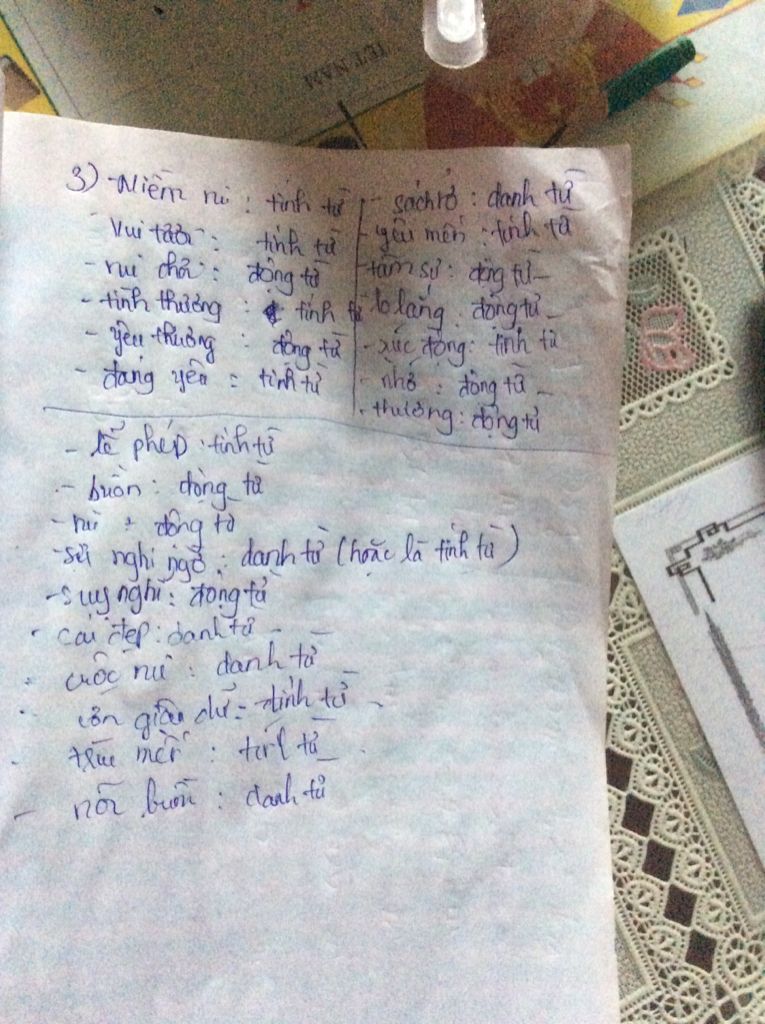 IỆT NAM
3) - Niềm nở : tính từ
Vui tươi : tính từ
- vui chơi : động từ
- tình thương : tính từ
- yêu thương : động từ
- đáng yêu : tính từ
- sách vở : danh từ
- yêu mến : tính từ
- tâm sự : động từ
lo lắng : động từ
- xúc động : tính từ
- nhớ : động từ
- thương : động từ
- lễ phép : tính từ
- buồn : động từ
- vui : động từ
- sự nghi ngờ : danh từ (hoặc là tính từ)
- suy nghĩ : động từ
- cái đẹp : danh từ
- cuộc vui : danh từ
- cơn giận dữ : tính từ
- trìu mến : tính từ
- nỗi buồn : danh từ